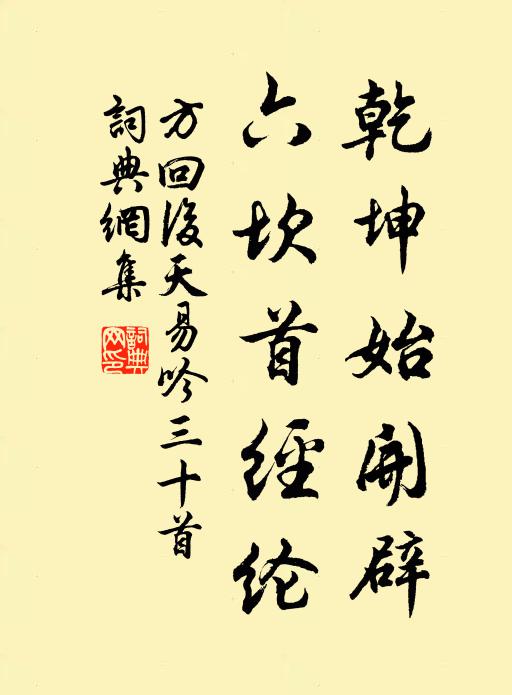 乾坤始開辟
六坎首經纶
方回後天易吟三十首
詞典網集
詞典网印